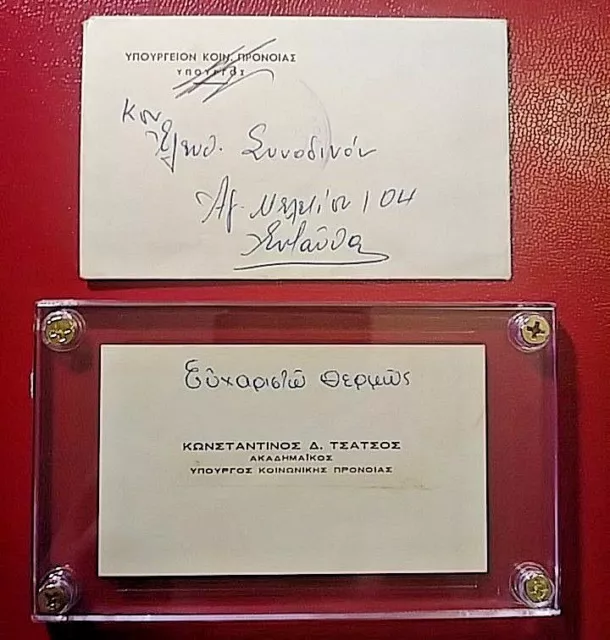 ΥΠΟΥΡΓΕΙΟΝ ΚΟΙΝ. ΠΡΟΝΟΙΑΣ
ΥΠΟΥΡΓΟΣ
Κον
Ἐλευθ. Συνοδινόν
Ἁγ. Μελετίου 104
Ἐνταῦθα
Εὐχαριστῶ θερμῶς
ΚΩΝΣΤΑΝΤΙΝΟΣ Δ. ΤΣΑΤΣΟΣ
ΑΚΑΔΗΜΑΪΚΟΣ
ΥΠΟΥΡΓΟΣ ΚΟΙΝΩΝΙΚΗΣ ΠΡΟΝΟΙΑΣ